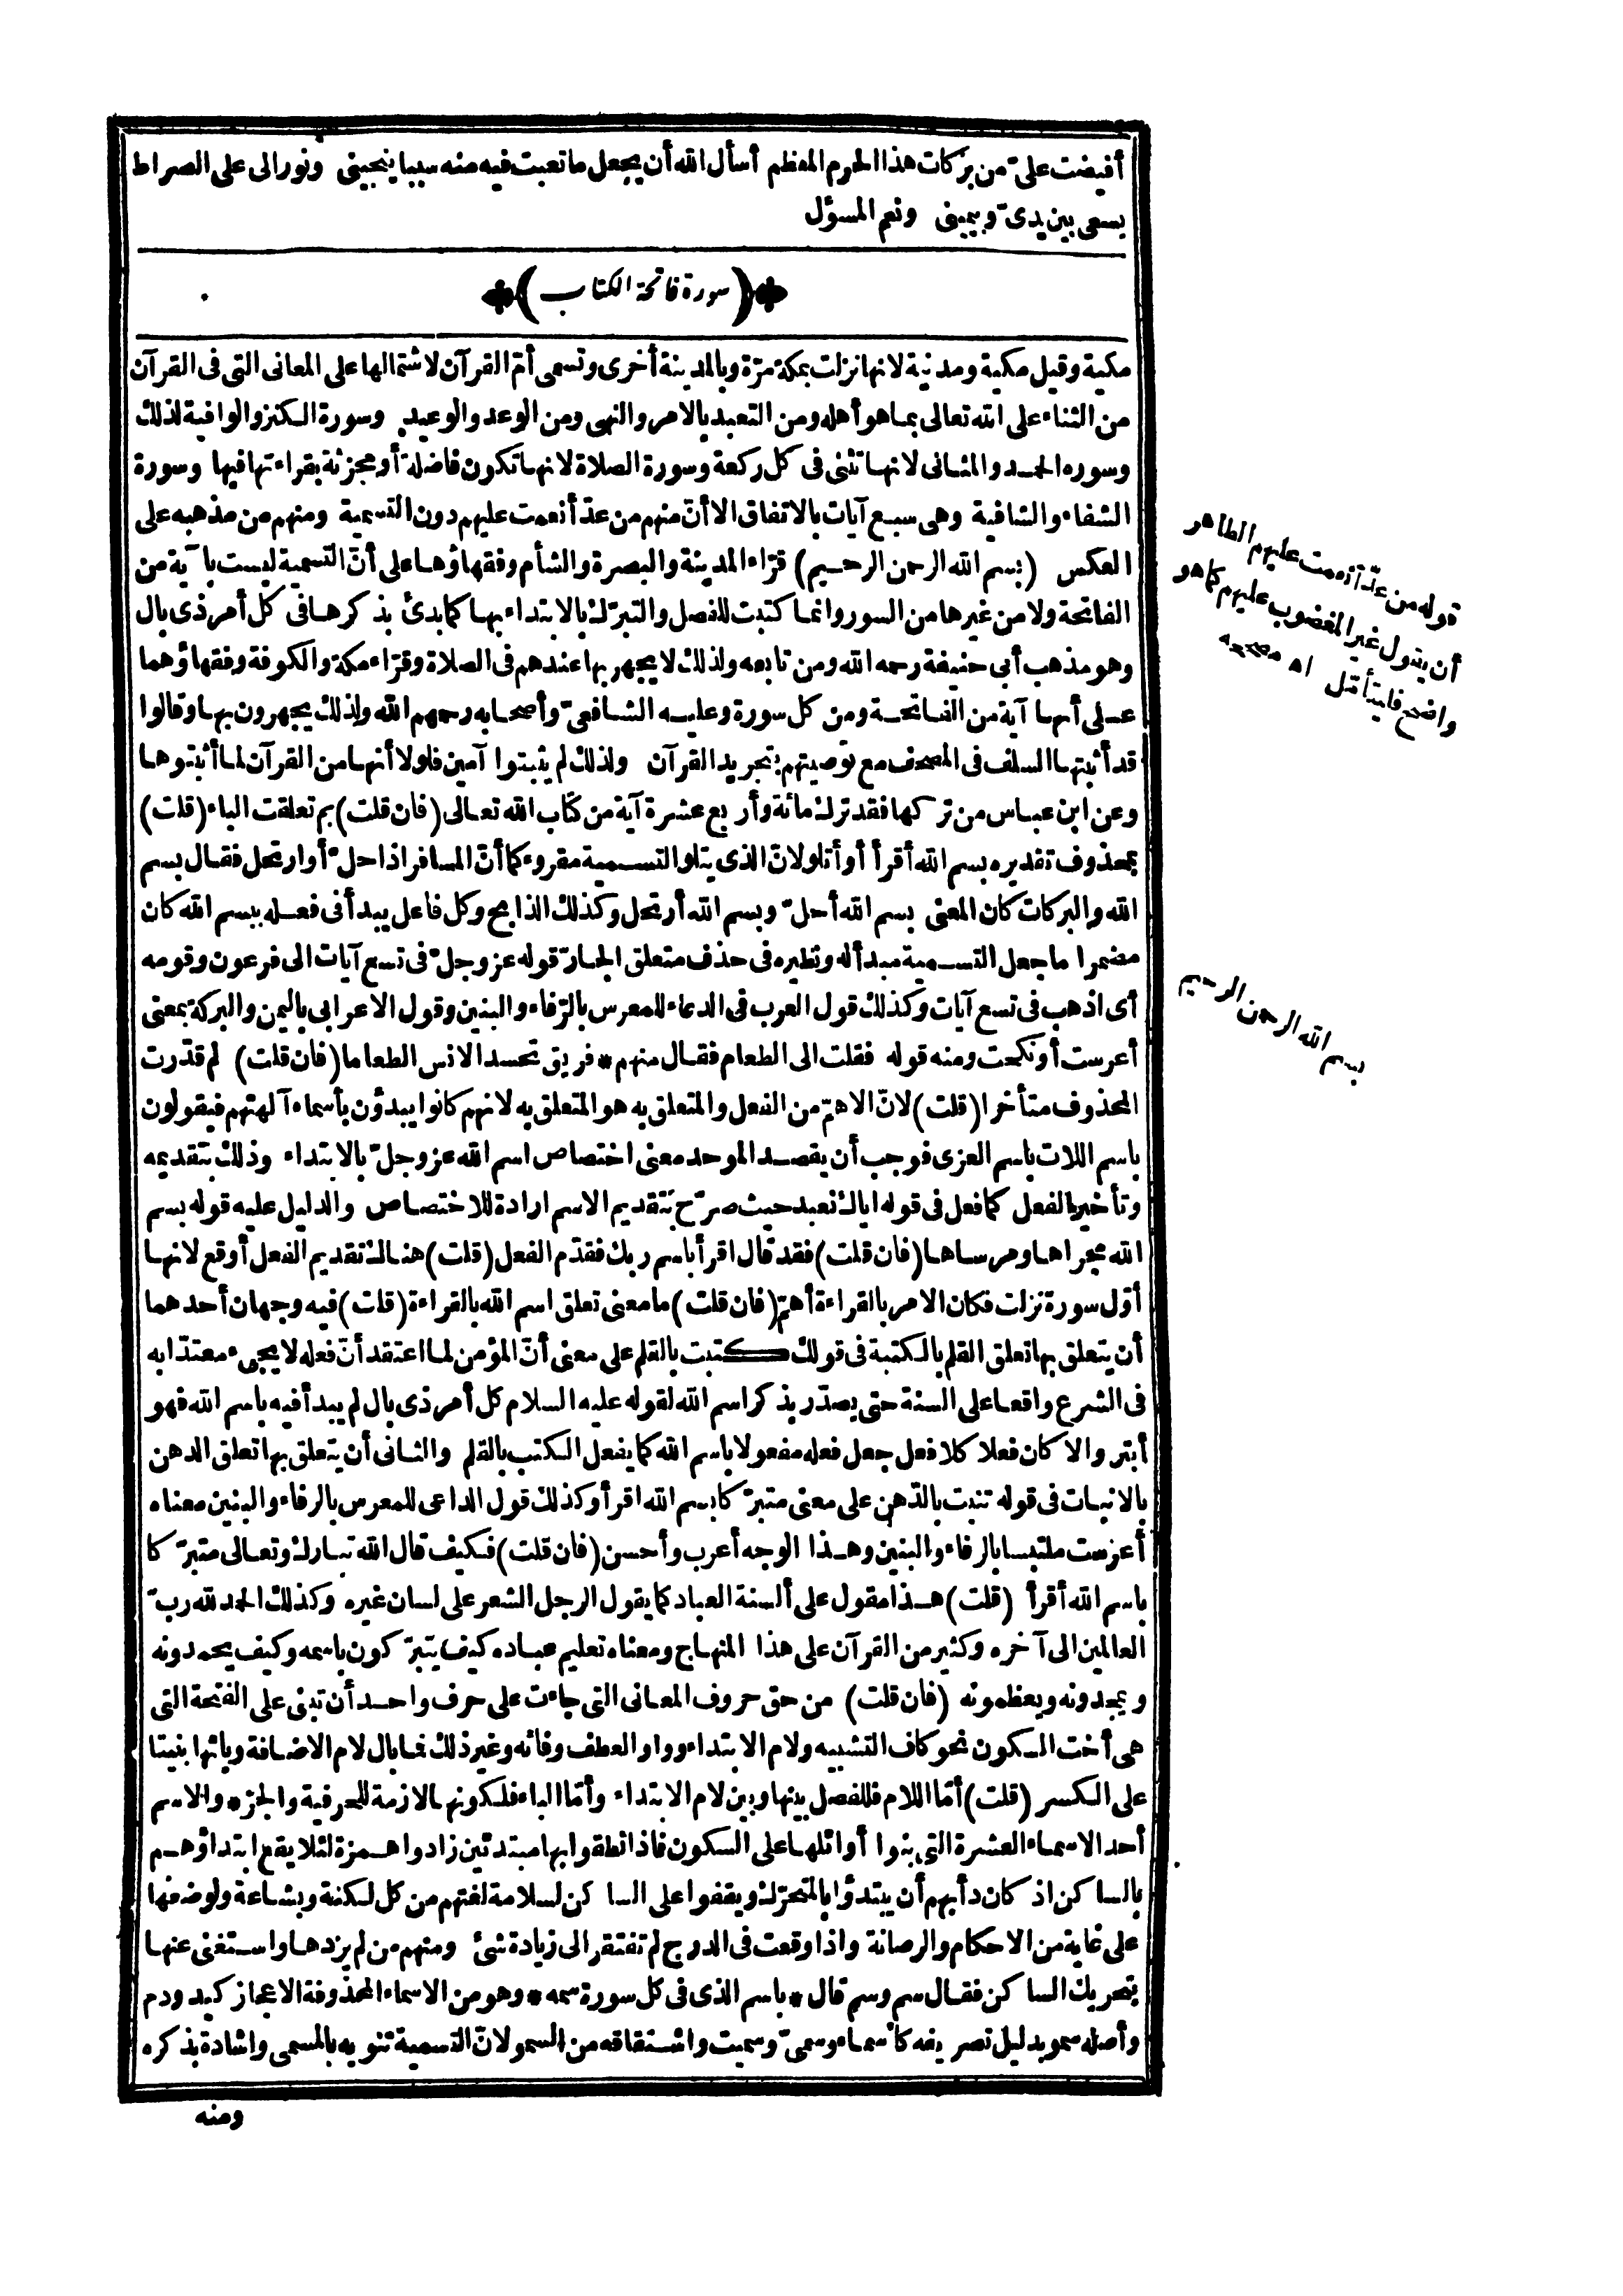 أفيضت علىّ من بركات هذا الحرم المعظم أسأل الله أن يجعل ما تعبت فيه منه سببا ينجينى ونورا لى على الصراط
يسعى بين يدىّ وبيمينى ونعم المسؤل
(سورة فاتحة الكتاب)
مكية وقيل مكية ومدنية لانها نزلت بمكة مرّة وبالمدينة أخرى وتسمى أمّ القرآن لاشتمالها على المعانى التى فى القرآن
من الثناء على الله تعالى بما هو أهله ومن التعبد بالامر والنهى ومن الوعد والوعيد وسورة الكنز والوافية لذلك
وسورة الحمد والمثانى لانها تثنى فى كل ركعة وسورة الصلاة لانها تكون فاضلة أو مجزئة بقراءتها فيها وسورة
الشفاء والشافية وهى سبع آيات بالاتفاق الا أنّ منهم من عدّ أنعمت عليهم دون التسمية ومنهم من مذهبه على
العكس (بسم الله الرحمن الرحيم) قرّاء المدينة والبصرة والشأم وفقهاؤها على أنّ التسمية ليست بآية من
الفاتحة ولا من غيرها من السور وانما كتبت للفصل والتبرّك بالابتداء بها كما بدئ بذكرها فى كل أمر ذى بال
وهو مذهب أبى حنيفة رحمه الله ومن تابعه ولذلك لا يجهر بها عندهم فى الصلاة وقرّاء مكة والكوفة وفقهاؤهما
على أنها آية من الفاتحة ومن كل سورة وعليه الشافعىّ وأصحابه رحمهم الله ولذلك يجهرون بها وقالوا
قد أثبتها السلف فى المصحف مع توصيتهم بتجريد القرآن ولذلك لم يثبتوا آمين فلولا أنها من القرآن لما أثبتوها
وعن ابن عباس من تركها فقد ترك مائة وأربع عشرة آية من كتاب الله تعالى (فان قلت) بم تعلقت الباء (قلت)
بمحذوف تقديره بسم الله أقرأ أو أتلو لانّ الذى يتلو التسمية مقروء كما أنّ المسافر اذا حلّ أو ارتحل فقال بسم
الله والبركات كان المعنى بسم الله أحلّ وبسم الله أرتحل وكذلك الذابح وكل فاعل يبدأ فى فعله ببسم الله كان
مضمرا ما جعل التسمية مبدأ له ونظيره فى حذف متعلق الجارّ قوله عز وجلّ فى تسع آيات الى فرعون وقومه
أى اذهب فى تسع آيات وكذلك قول العرب فى الدعاء للمعرس بالرّفاء والبنين وقول الاعرابى باليمن والبركة بمعنى
أعرست أو نكحت ومنه قوله فقلت الى الطعام فقال منهم * فريق نحسد الانس الطعاما (فان قلت) لم قدّرت
المحذوف متأخرا (قلت) لانّ الاهمّ من الفعل والمتعلق به هو المتعلق به لانهم كانوا يبدؤن بأسماء آلهتهم فيقولون
باسم اللات باسم العزى فوجب أن يقصد الموحد معنى اختصاص اسم الله عز وجلّ بالابتداء وذلك بتقديمه
وتأخير الفعل كما فعل فى قوله اياك نعبد حيث صرّح بتقديم الاسم ارادة للاختصاص والدليل عليه قوله بسم
الله مجراها ومرساها (فان قلت) فقد قال اقرأ باسم ربك فقدّم الفعل (قلت) هناك تقديم الفعل أوقع لانها
أوّل سورة نزلت فكان الامر بالقراءة أهمّ (فان قلت) ما معنى تعلق اسم الله بالقراءة (قلت) فيه وجهان أحدهما
أن يتعلق بها تعلق القلم بالكتبة فى قولك كتبت بالقلم على معنى أنّ المؤمن لما اعتقد أنّ فعله لا يجىء معتدّا به
فى الشرع واقعا على السنة حتى يصدّر بذكر اسم الله لقوله عليه السلام كل أمر ذى بال لم يبدأ فيه باسم الله فهو
أبتر والا كان فعلا كلا فعل جعل فعله مفعولا باسم الله كما يفعل الكتب بالقلم والثانى أن يتعلق بها تعلق الدهن
بالانبات فى قوله تنبت بالدّهن على معنى متبرّكا بسم الله اقرأ وكذلك قول الداعى للمعرس بالرفاء والبنين معناه
أعرست ملتبسا بالرفاء والبنين وهذا الوجه أعرب وأحسن (فان قلت) فكيف قال الله تبارك وتعالى متبرّكا
باسم الله أقرأ (قلت) هذا مقول على ألسنة العباد كما يقول الرجل الشعر على لسان غيره وكذلك الحمد لله ربّ
العالمين الى آخره وكثير من القرآن على هذا المنهاج ومعناه تعليم عباده كيف يتبرّكون باسمه وكيف يحمدونه
ويمجدونه ويعظمونه (فان قلت) من حق حروف المعانى التى جاءت على حرف واحد أن تبنى على الفتحة التى
هى أخت السكون نحو كاف التشبيه ولام الابتداء وواو العطف وفائه وغير ذلك فما بال لام الاضافة وبائها بنيتا
على الكسر (قلت) أمّا اللام فللفصل بينها وبين لام الابتداء وأمّا الباء فلكونها لازمة للحرفية والجرّ والاسم
أحد الاسماء العشرة التى بنوا أوائلها على السكون فاذا نطقوا بها مبتدئين زادوا همزة لئلا يقع ابتداؤهم
بالساكن اذ كان دأبهم أن يبتدؤا بالمتحرّك ويقفوا على الساكن لسلامة لغتهم من كل لكنة وبشاعة ولوضعها
على غاية من الاحكام والرصانة واذا وقعت فى الدرج لم تفتقر الى زيادة شئ ومنهم من لم يزدها واستغنى عنها
بتحريك الساكن فقال سم وسم قال * باسم الذى فى كل سورة سمه * وهو من الاسماء المحذوفة الاعجاز كيد ودم
وأصله سمو بدليل تصريفه كأسماء وسمىّ وسميت واشتقاقه من السمو لانّ التسمية تنويه بالمسمى واشادة بذكره
ومنه
قوله من عدّ أنعمت عليهم الظاهر
أن يقول غير المغضوب عليهم كما هو
واضح فليتأمّل اه مصححه
بسم الله الرحمن الرحيم